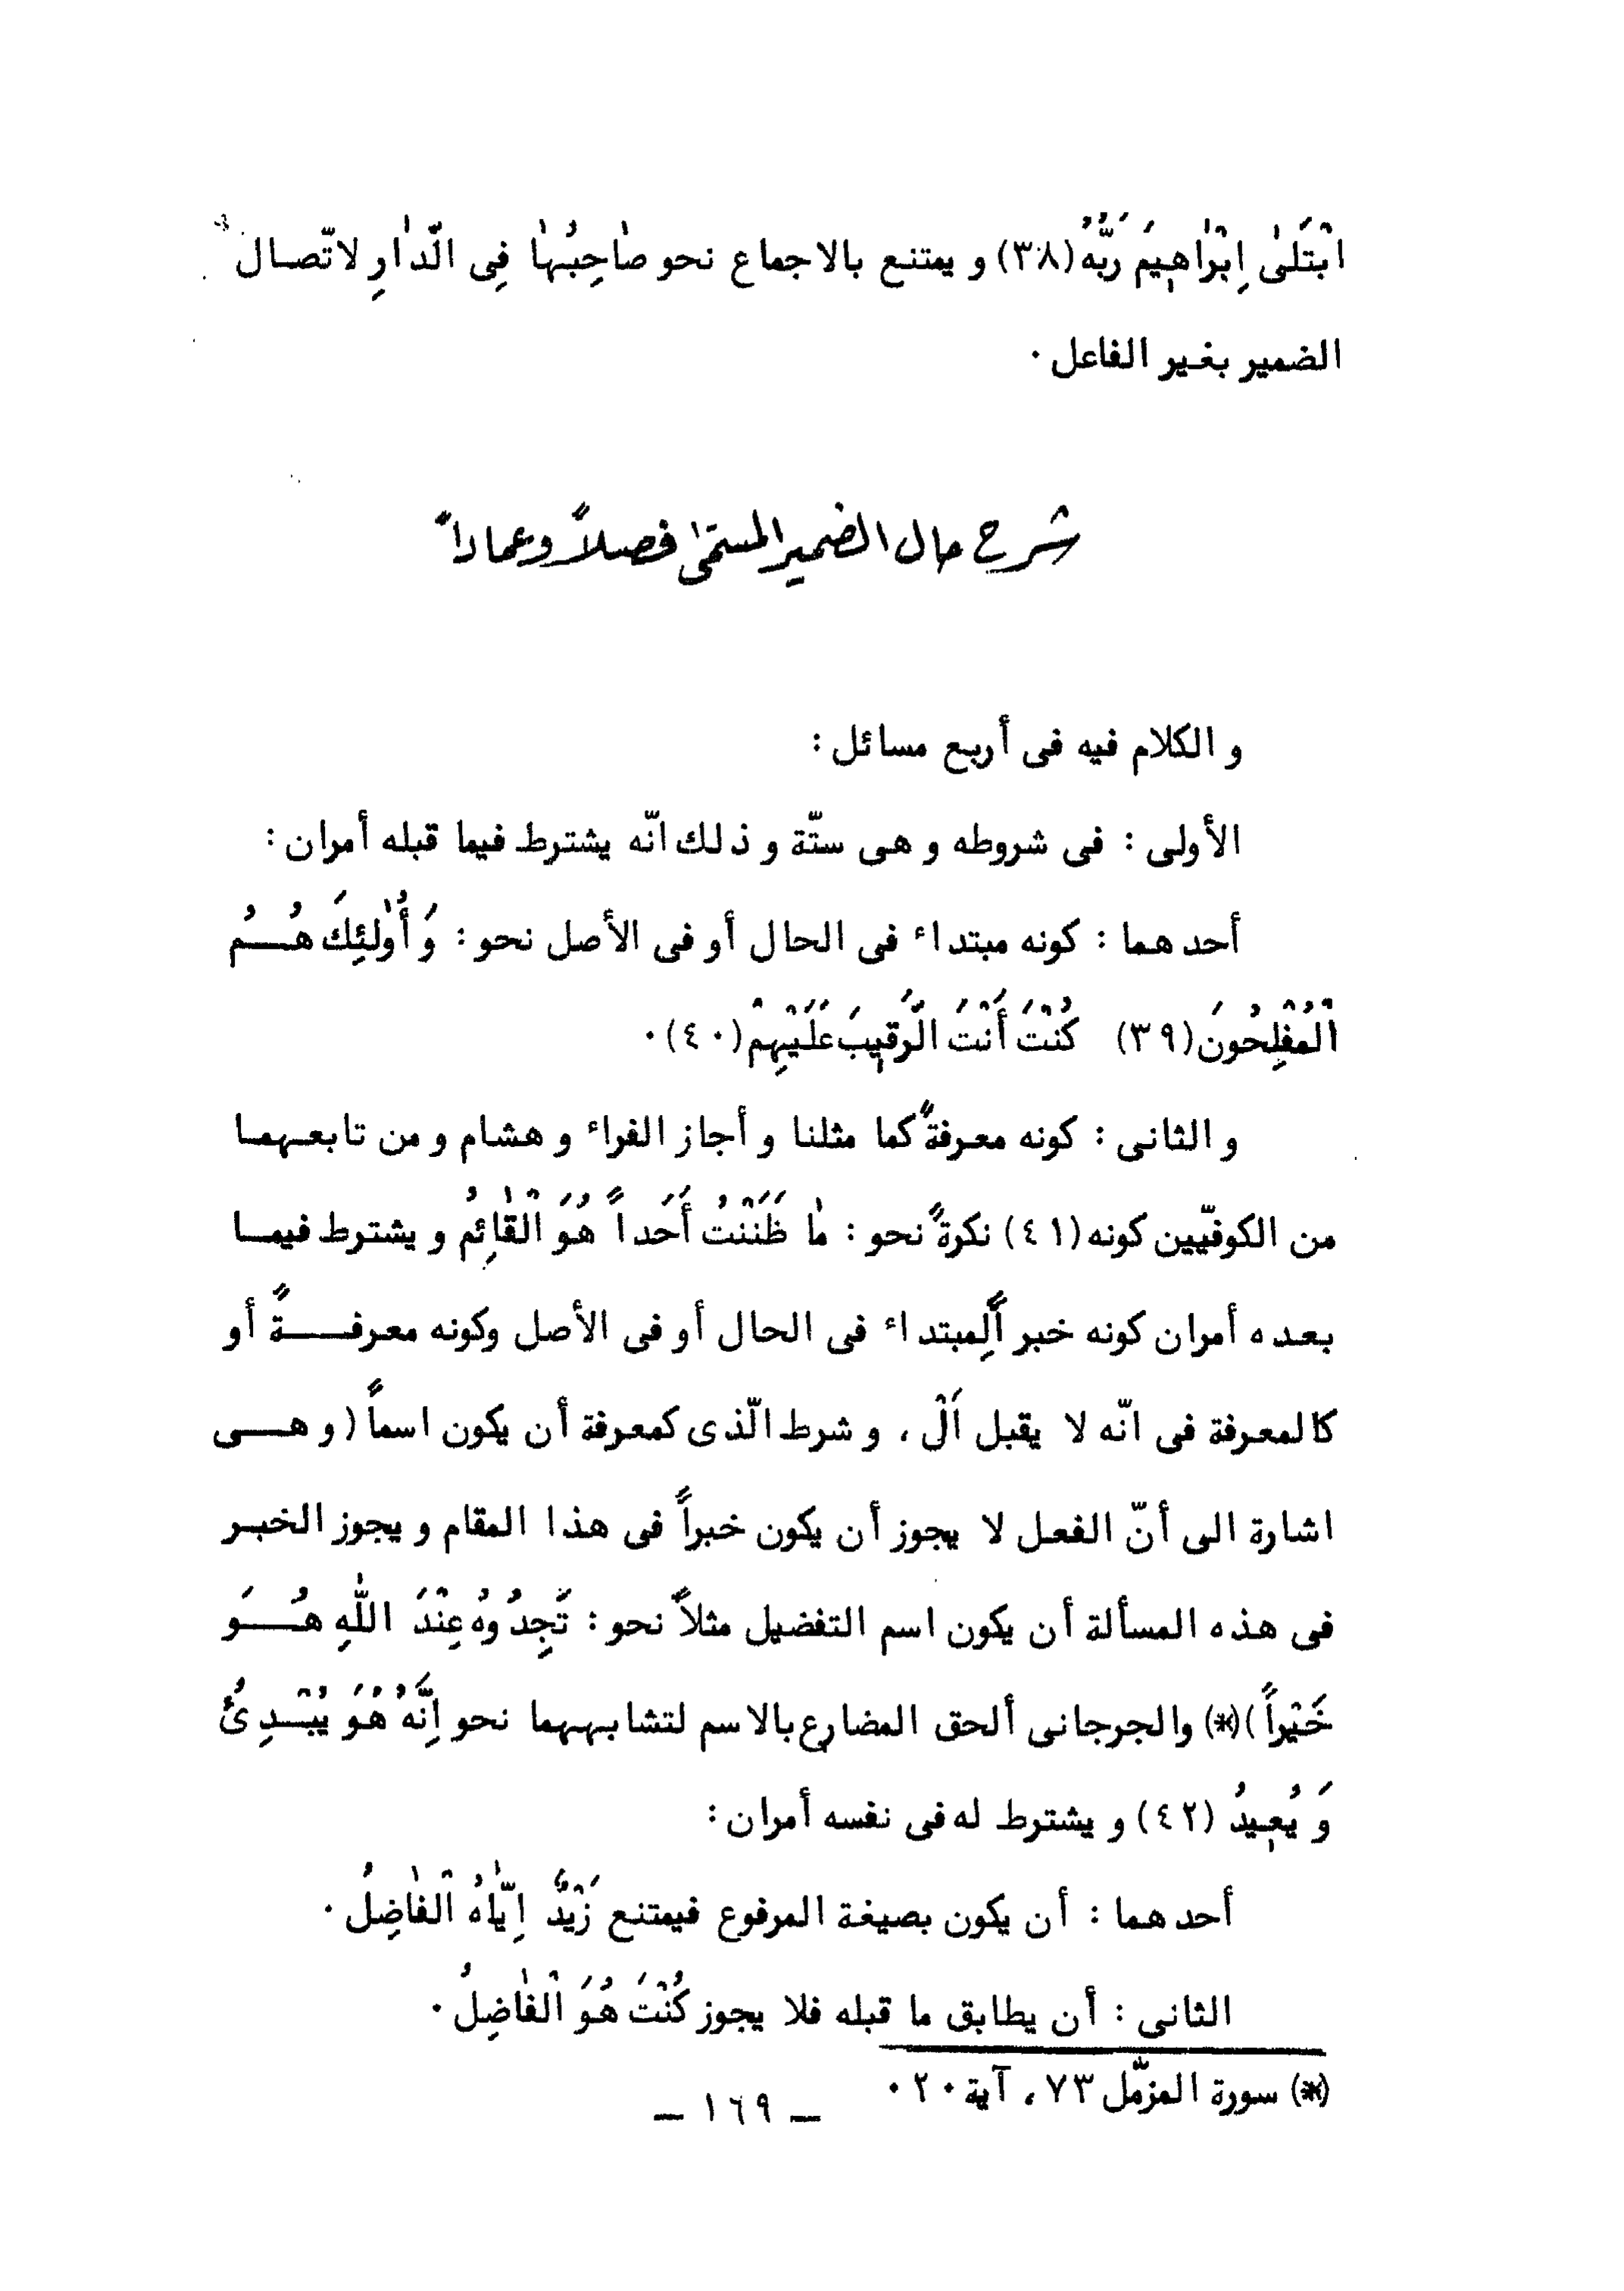 ابْتَلَىٰ إِبْرٰاهِيمَ رَبُّهُ (٣٨) و يمتنع بالاجماع نحو صٰاحِبُهٰا فِى الدّٰارِ لاتّصال
الضمير بغير الفاعل ٠
شرح حال الضمير المسمّىٰ فصلاً وعماداً
و الكلام فيه فى أربع مسائل :
الأولى : فى شروطه و هى ستّة و ذلك انّه يشترط فيما قبله أمران :
أحدهما : كونه مبتداء فى الحال أو فى الأصل نحو : وَ أُوٰلئِكَ هُـــمُ
الْمُفْلِحُونَ (٣٩) كُنْتَ أَنْتَ الرَّقِيبَ عَلَيْهِمْ (٤٠) ٠
و الثانى : كونه معرفةً كما مثلنا و أجاز الفراء و هشام و من تابعهما
من الكوفيّين كونه (٤١) نكرةً نحو : مٰا ظَنَنْتُ أَحَداً هُوَ الْقٰائِمُ و يشترط فيمـا
بعده أمران كونه خبراً لِمبتداء فى الحال أو فى الأصل وكونه معرفـــةً أو
كالمعرفة فى انّه لا يقبل اَلْ ، و شرط الّذى كمعرفة أن يكون اسماً ( و هـــى
اشارة الى أنّ الفعل لا يجوز أن يكون خبراً فى هذا المقام و يجوز الخبـر
فى هذه المسألة أن يكون اسم التفضيل مثلاً نحو : تَجِدُوهُ عِنْدَ اللّٰهِ هُـــوَ
خَيْراً ) (*) والجرجانى ألحق المضارع بالاسم لتشابههما نحو إِنَّهُ هُوَ يُبْـــدِئُ
وَ يُعِيدُ (٤٢) و يشترط له فى نفسه أمران :
أحدهما : أن يكون بصيغة المرفوع فيمتنع زَيْدٌ إِيّٰاهُ الْفٰاضِلُ ٠
الثانى : أن يطابق ما قبله فلا يجوز كُنْتَ هُوَ الْفٰاضِلُ ٠
(*) سورة المزمّل ٧٣ ، آية ٢٠ ٠
— ١٦٩ —